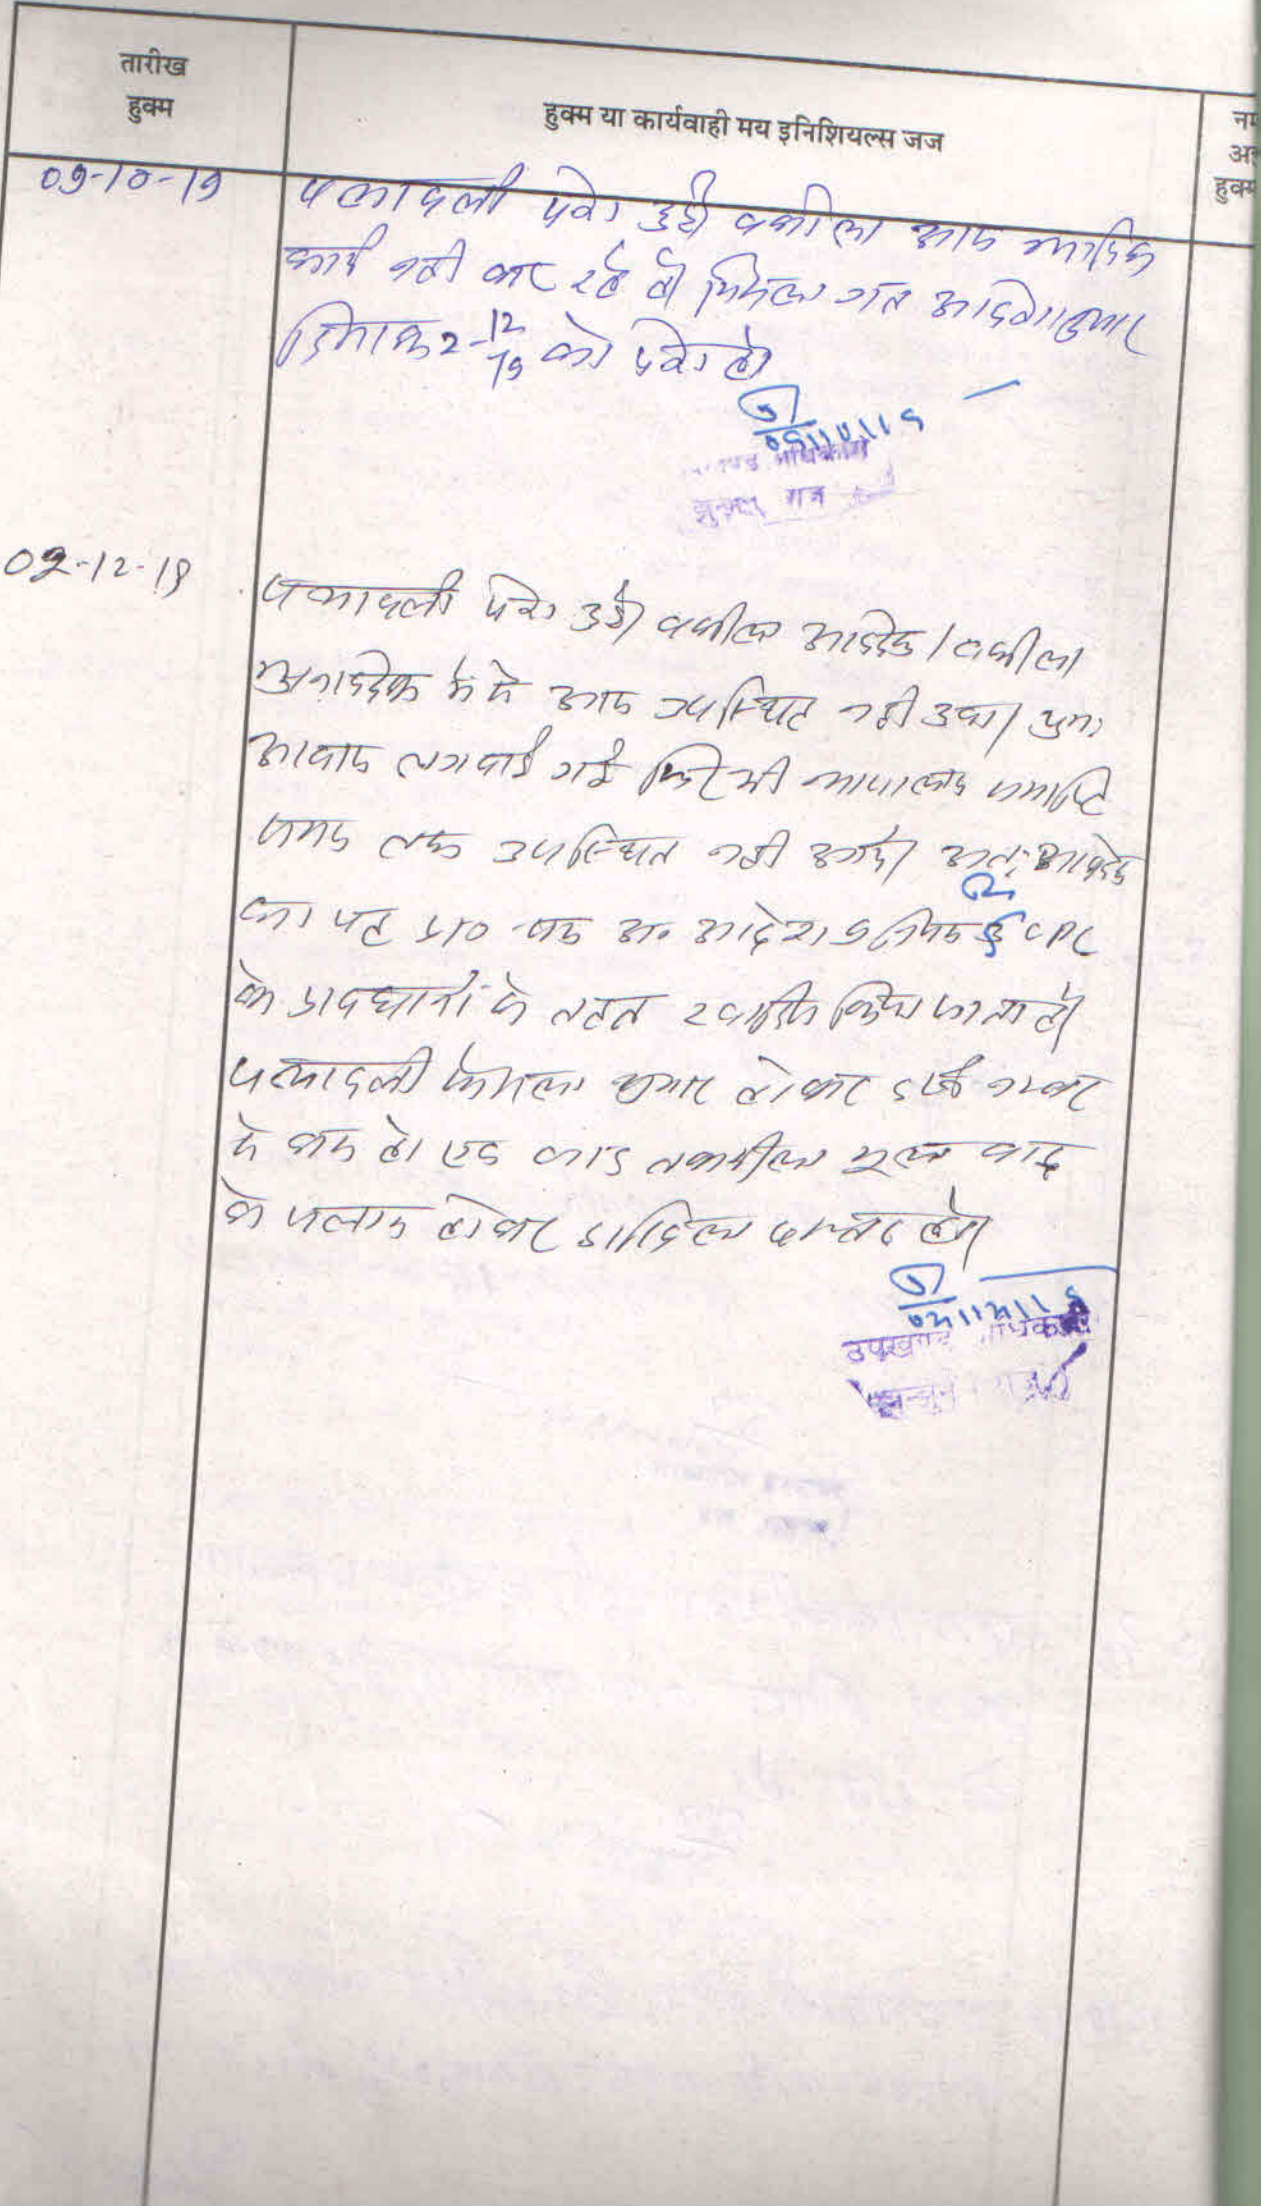 तारीख
हुक्म
हुक्म या कार्यवाही मय इनिशियल्स जज
हुक्म
09-10-19
पत्रावली पेश हुई। वकील आज न्यायिक
कार्य नही कर रहे है। मिसल गत आदेशानुसार
दिनांक 2-12/19 को पेश हो।
09/10/19
02-12-19
पत्रावली पेश हुई। वकील आवेदक। वकील
अनावेदक में से आज उपस्थित नही हुआ। पुनः
आवाज लगवाई गई फिर भी न्यायालय समाप्ति
समय तक उपस्थित नही आये। अतः आवेदक
का यह प्रा० पत्र अ. आदेश 9 नियम 8 CPC
के प्रावधानों के तहत खारिज किया जाता है।
पत्रावली फैसल शुमार होकर दर्ज नम्बर
से कम हो। एवं बाद तकमील मूल वाद
के संलग्न होकर दाखिल दफ्तर हो।
उपखण्ड अधिकारी